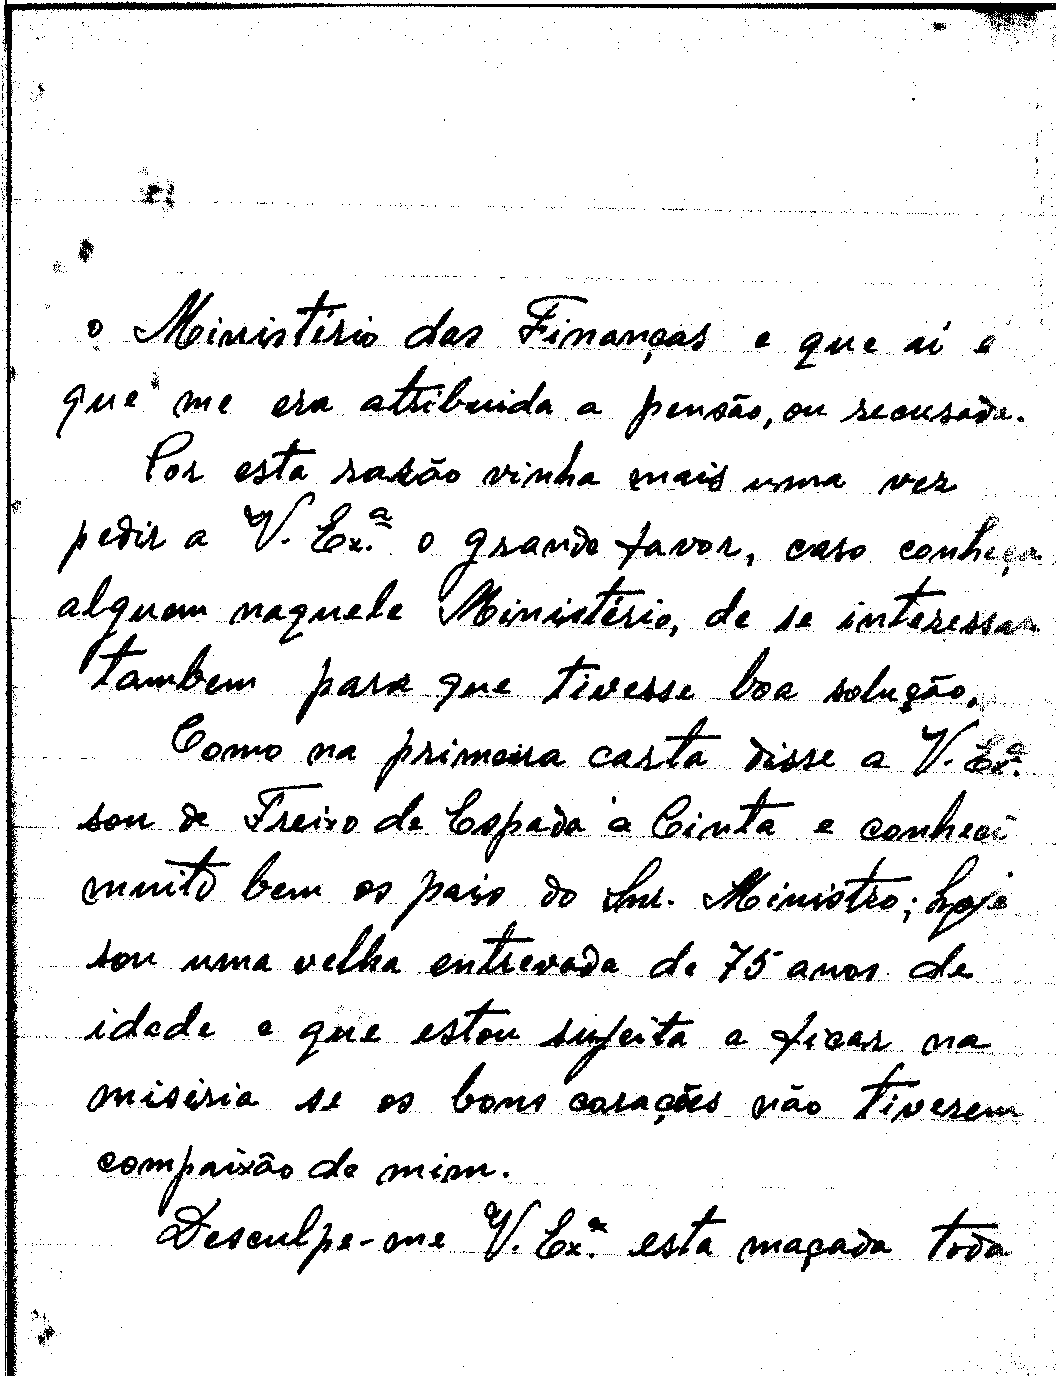 o Ministério das Finanças e que aí é
que me era atribuida a pensão, ou recusada.
Por esta rasão vinha mais uma vez
pedir a V. Ex.ª o grande favor, caso conheça
alguem naquele Ministério, de se interessar
tambem para que tivesse boa solução.
Como na primeira carta disse a V. Exª.
sou de Freixo de Espada à Cinta e conheci
muito bem os pais do Snr. Ministro; hoje
sou uma velha entrevada de 75 anos de
idade e que estou sujeita a ficar na
miséria se os bons corações não tiverem
compaixão de mim.
Desculpe-me V. Ex.ª esta maçada toda